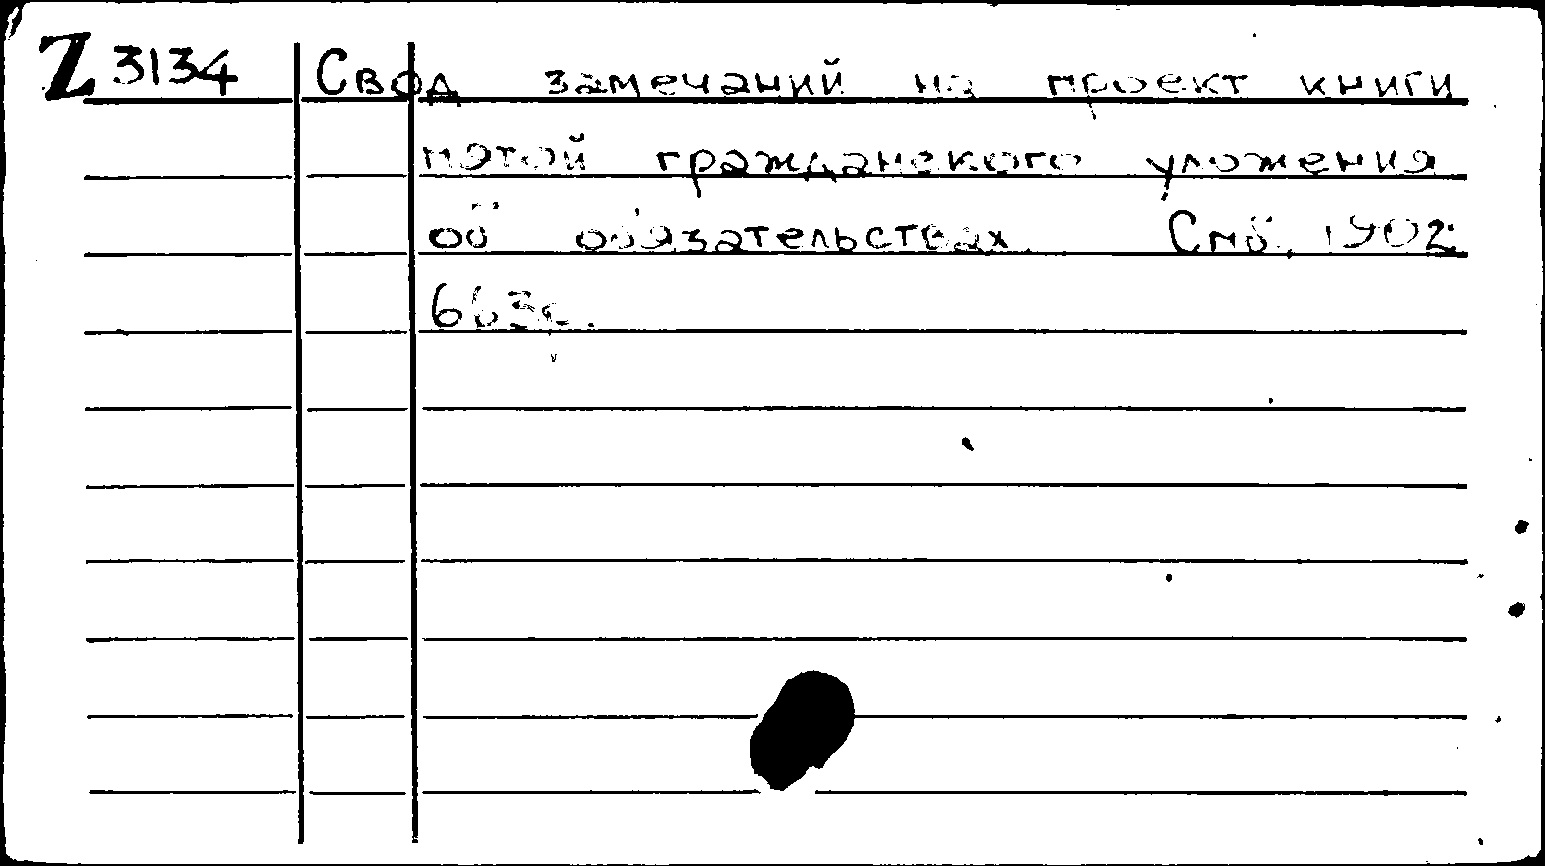 Z 3134 Свод замечаний на проект книги
пятой гражданского уложения
об обязательствах. Спб., 1902.
663с.